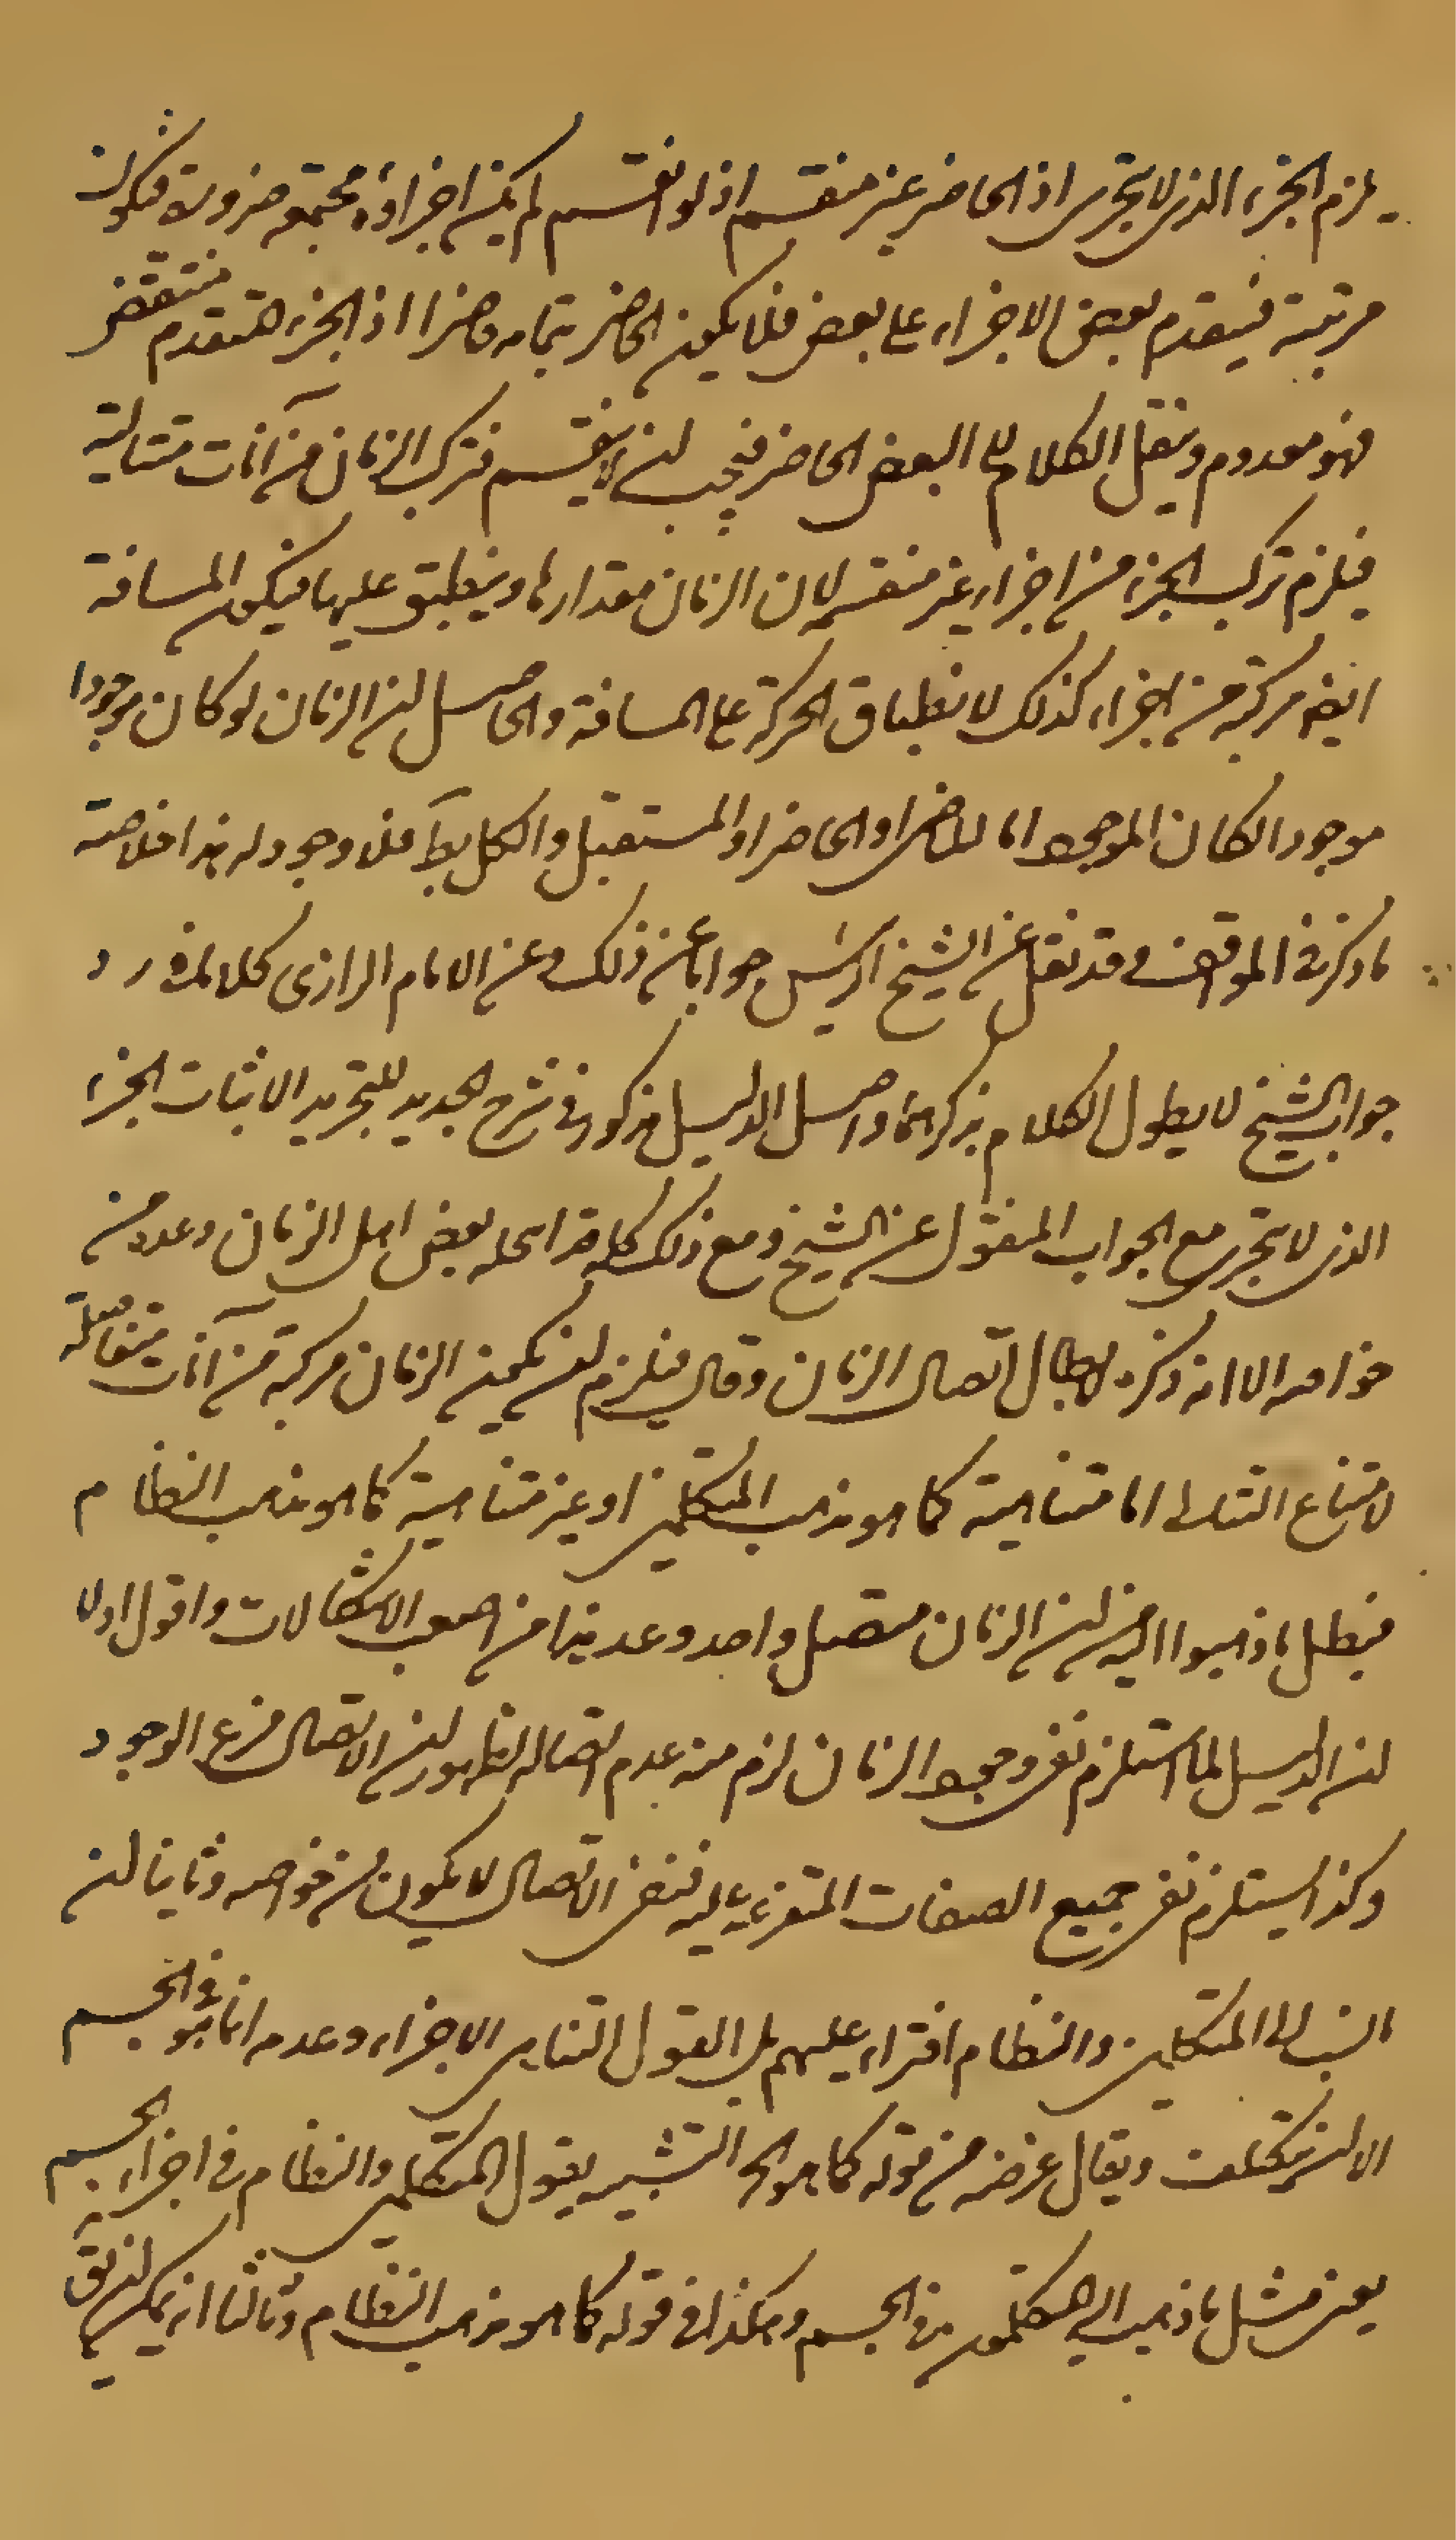 يلزم الجزء الذى لا يتجزى اذ الحاضر غير منقسم اذ لو انقسم لم يكن اجزاؤه مجتمعة ضرورة فيكون
مرتبة فيتقدم بعض الاجزاء على بعض فلا يكون الحاضر بتمامه حاضرا اذ الجزء المتقدم منتقض
فهو معدوم وينقل الكلام الى البعض الحاضر فيجب ان لا ينقسم فتركب الزمان من آنات متتالية
فيلزم تركب الجزء من اجزاء غير منقسمة لان الزمان مقدارها وينطبق عليها فيكون المسافة
ايضا مركبة من اجزاء كذلك لانطباق الحركة على المسافة والحاصل ان الزمان لو كان موجودا
موجودا لكان الموجود اما الماضى او الحاضر او المستقبل والكل بط فلا وجود له هذا خلاصة
ما ذكر فى المواقف وقد نقل عن الشيخ الرئيس جوابا عن ذلك وعن الامام الرازى كلاما فى رد
جواب الشيخ لا يطول الكلام بذكرهما واصل الدليل مذكور فى شرح الجديد للتجريد لاثبات الجزء
الذى لا يتجزى مع الجواب المنقول عن الشيخ ومع ذلك كله قد انتحله بعض اهل الزمان وعده من
خواصه الا انه ذكره لابطال اتصال الزمان وقال فيلزم ان يكون الزمان مركبة من آنات متفاصلة
لامتناع التتالى اما متناهية كما هو مذهب المتكلمين او غير متناهية كما هو مذهب النظام
فبطل ما ذهبوا اليه من ان الزمان متصل واحد وعد هذا من اصعب الاشكالات واقول اولا
ان الدليل لما استلزم نفى وجود الزمان لزم منه عدم اتصاله لظهور ان الاتصال فرع الوجود
وكذا يستلزم نفى جميع الصفات المتفرعة عليه فنفى الاتصال لا يكون من خواصه وثانيا ان
ما نسب الى المتكلمين والنظام افتراء عليهم بل القول لتناهى الاجزاء وعدمه انما هو فى الجسم
الا ان يتكلف ويقال غرضه من قوله كما هو الخ التشبيه بقول المتكلمين والنظام فى اجزاء الجسم
يعنى مثل ما ذهب اليه المتكلمون فى الجسم وهكذا فى قوله كما هو مذهب النظام وثالثا انه يمكن ان يق